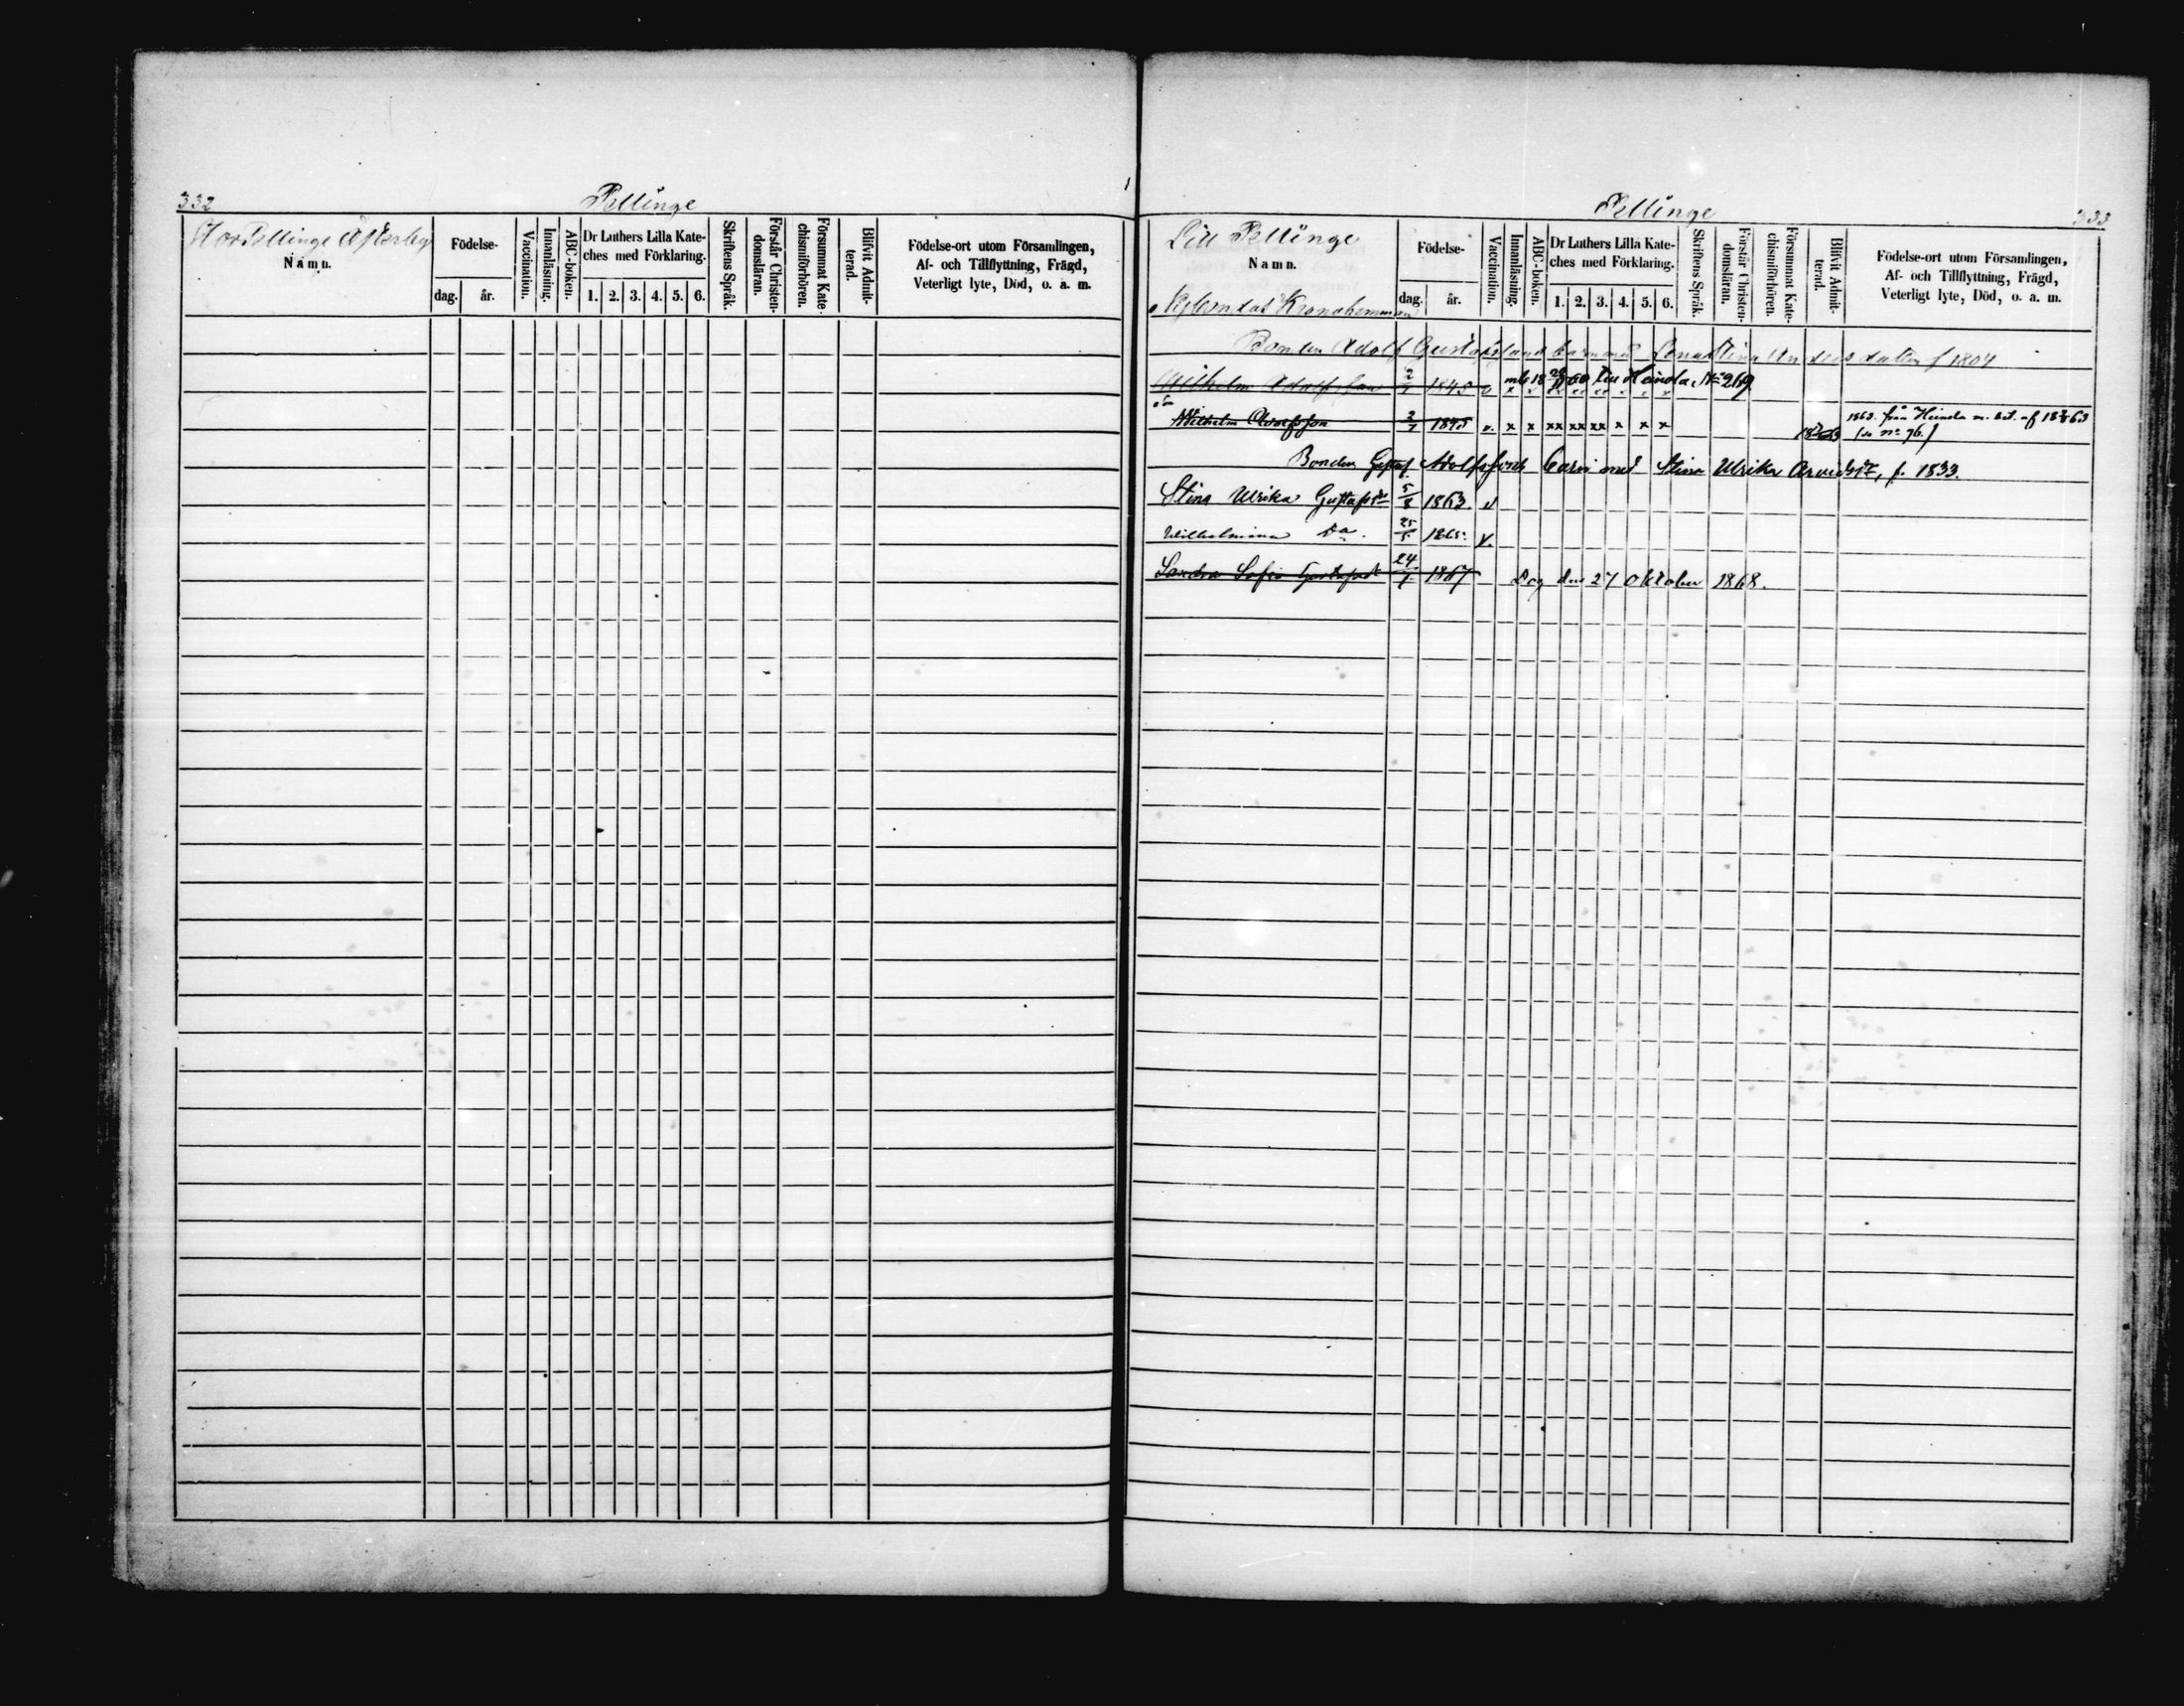 332
Pellinge
StorPellinge Österby
Namn.
Födelse-
dag.
år.
Vaccination.
Innanläsning.
ABC-boken.
Dr Luthers Lilla Kate-
ches med Förklaring.
1. 2. 3. 4. 5. 6.
Skriftens Språk.
Förstår Christen-
domsläran.
Försummat Kate-
chismiförhören.
Blifvit Admit-
terad.
Födelse-ort utom Församlingen,
Af- och Tillflyttning, Frägd,
Veterligt lyte, Död, o. a. m.
333
Pellinge
Lill Pellinge
Namn.
Kronohemman
Födelse-
dag.
år.
Vaccination.
Innanläsning.
ABC-boken.
Dr Luthers Lilla Kate-
ches med Förklaring.
1. 2. 3. 4. 5. 6.
Skriftens Språk.
Förstår Christen-
domsläran.
Försummat Kate-
chismiförhören.
Blifvit Admit-
terad.
Födelse-ort utom Församlingen,
Af- och Tillflyttning, Frägd,
Veterligt lyte, Död, o. a. m.
Bonden Adolf Gustafssons barn med Lena Stina Andersdotter f 1804
Wilhelm Adolfsson 2/1 1845 v mb 18 60 till Heinola No 269
Wilhelm Adolfsson 2/1 1845 v. x x xx xx xx x x x 1863 från Heinola m. bet. af
Bonden Gustaf Adolfssons barn med Stina Ulrika Arvidsdr, f. 1833.
Stina Ulrika Gustafsdr 5/8 1863. v
Wilhelmina Da. 25/5 1865. v.
Sandra Sofia Gustafsdr 24/1 1867 Dog den 27 Oktober 1868.